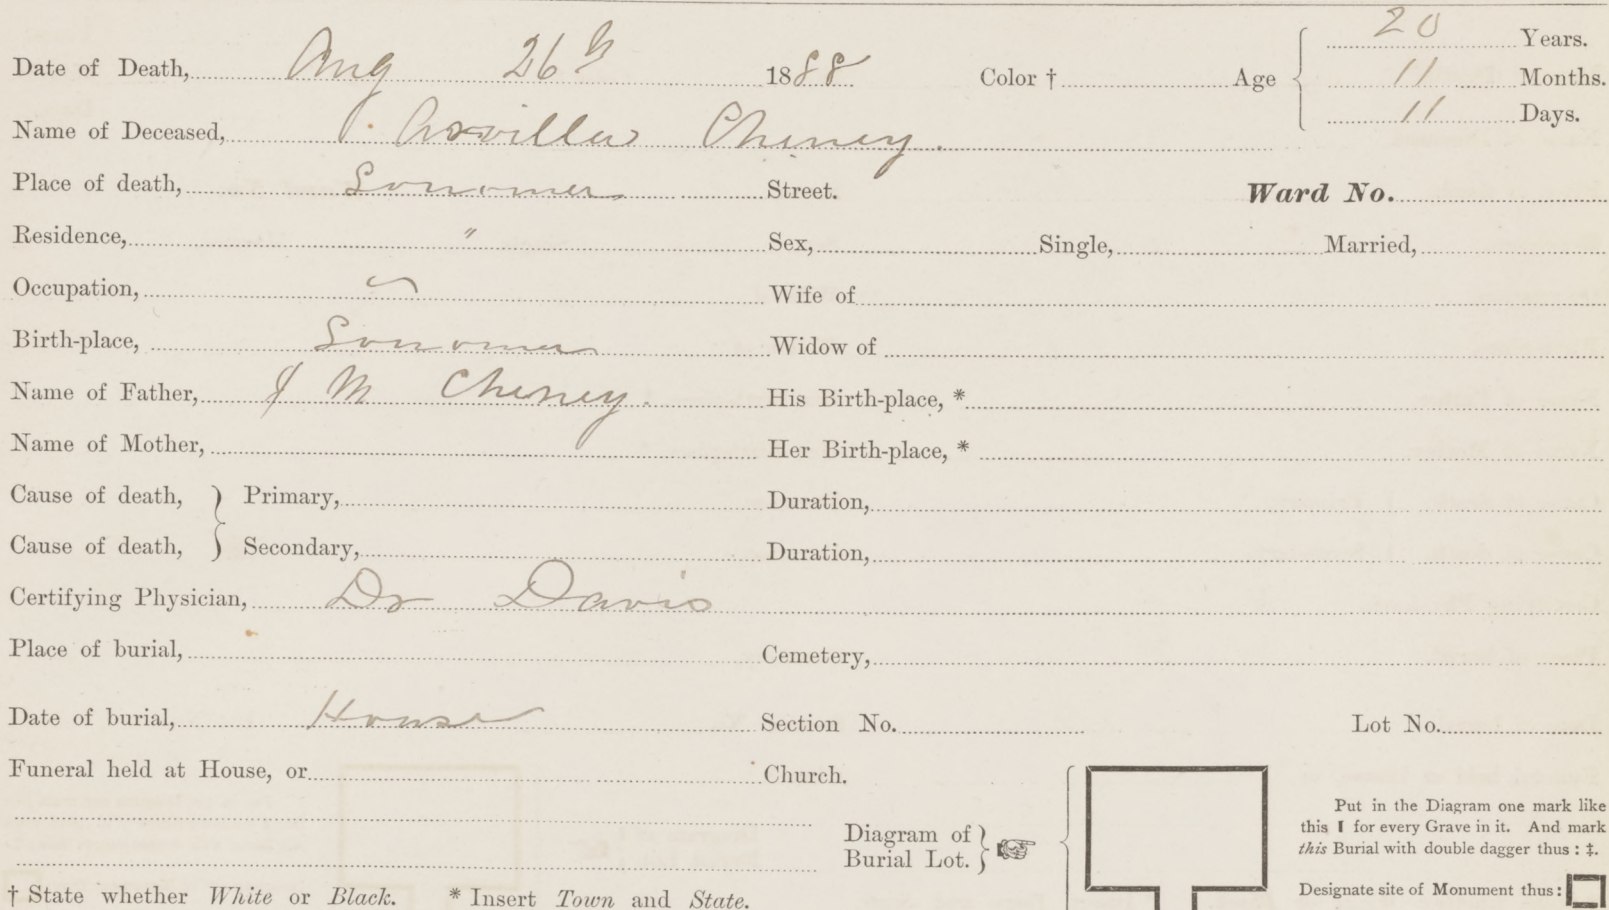 20 Years.
Date of Death, Aug 26th 1888 Color † Age 11 Months.
11 Days.
Name of Deceased, Cheney.
Place of death, Sonomer Street. Ward No.
Residence, " Sex, Single, Married,
Occupation, Wife of
Birth-place, Sonomer Widow of
Name of Father, J M Cheney. His Birth-place, *
Name of Mother, Her Birth-place, *
Cause of death, } Primary, Duration,
Cause of death, } Secondary, Duration,
Certifying Physician, Dr Davis
Place of burial, Cemetery,
Date of burial, House Section No. Lot No.
Funeral held at House, or Church.
Put in the Diagram one mark like
this ❙ for every Grave in it. And mark
this Burial with double dagger thus : ‡.
Diagram of
Burial Lot. } ☞
Designate site of Monument thus: □
† State whether White or Black. * Insert Town and State.